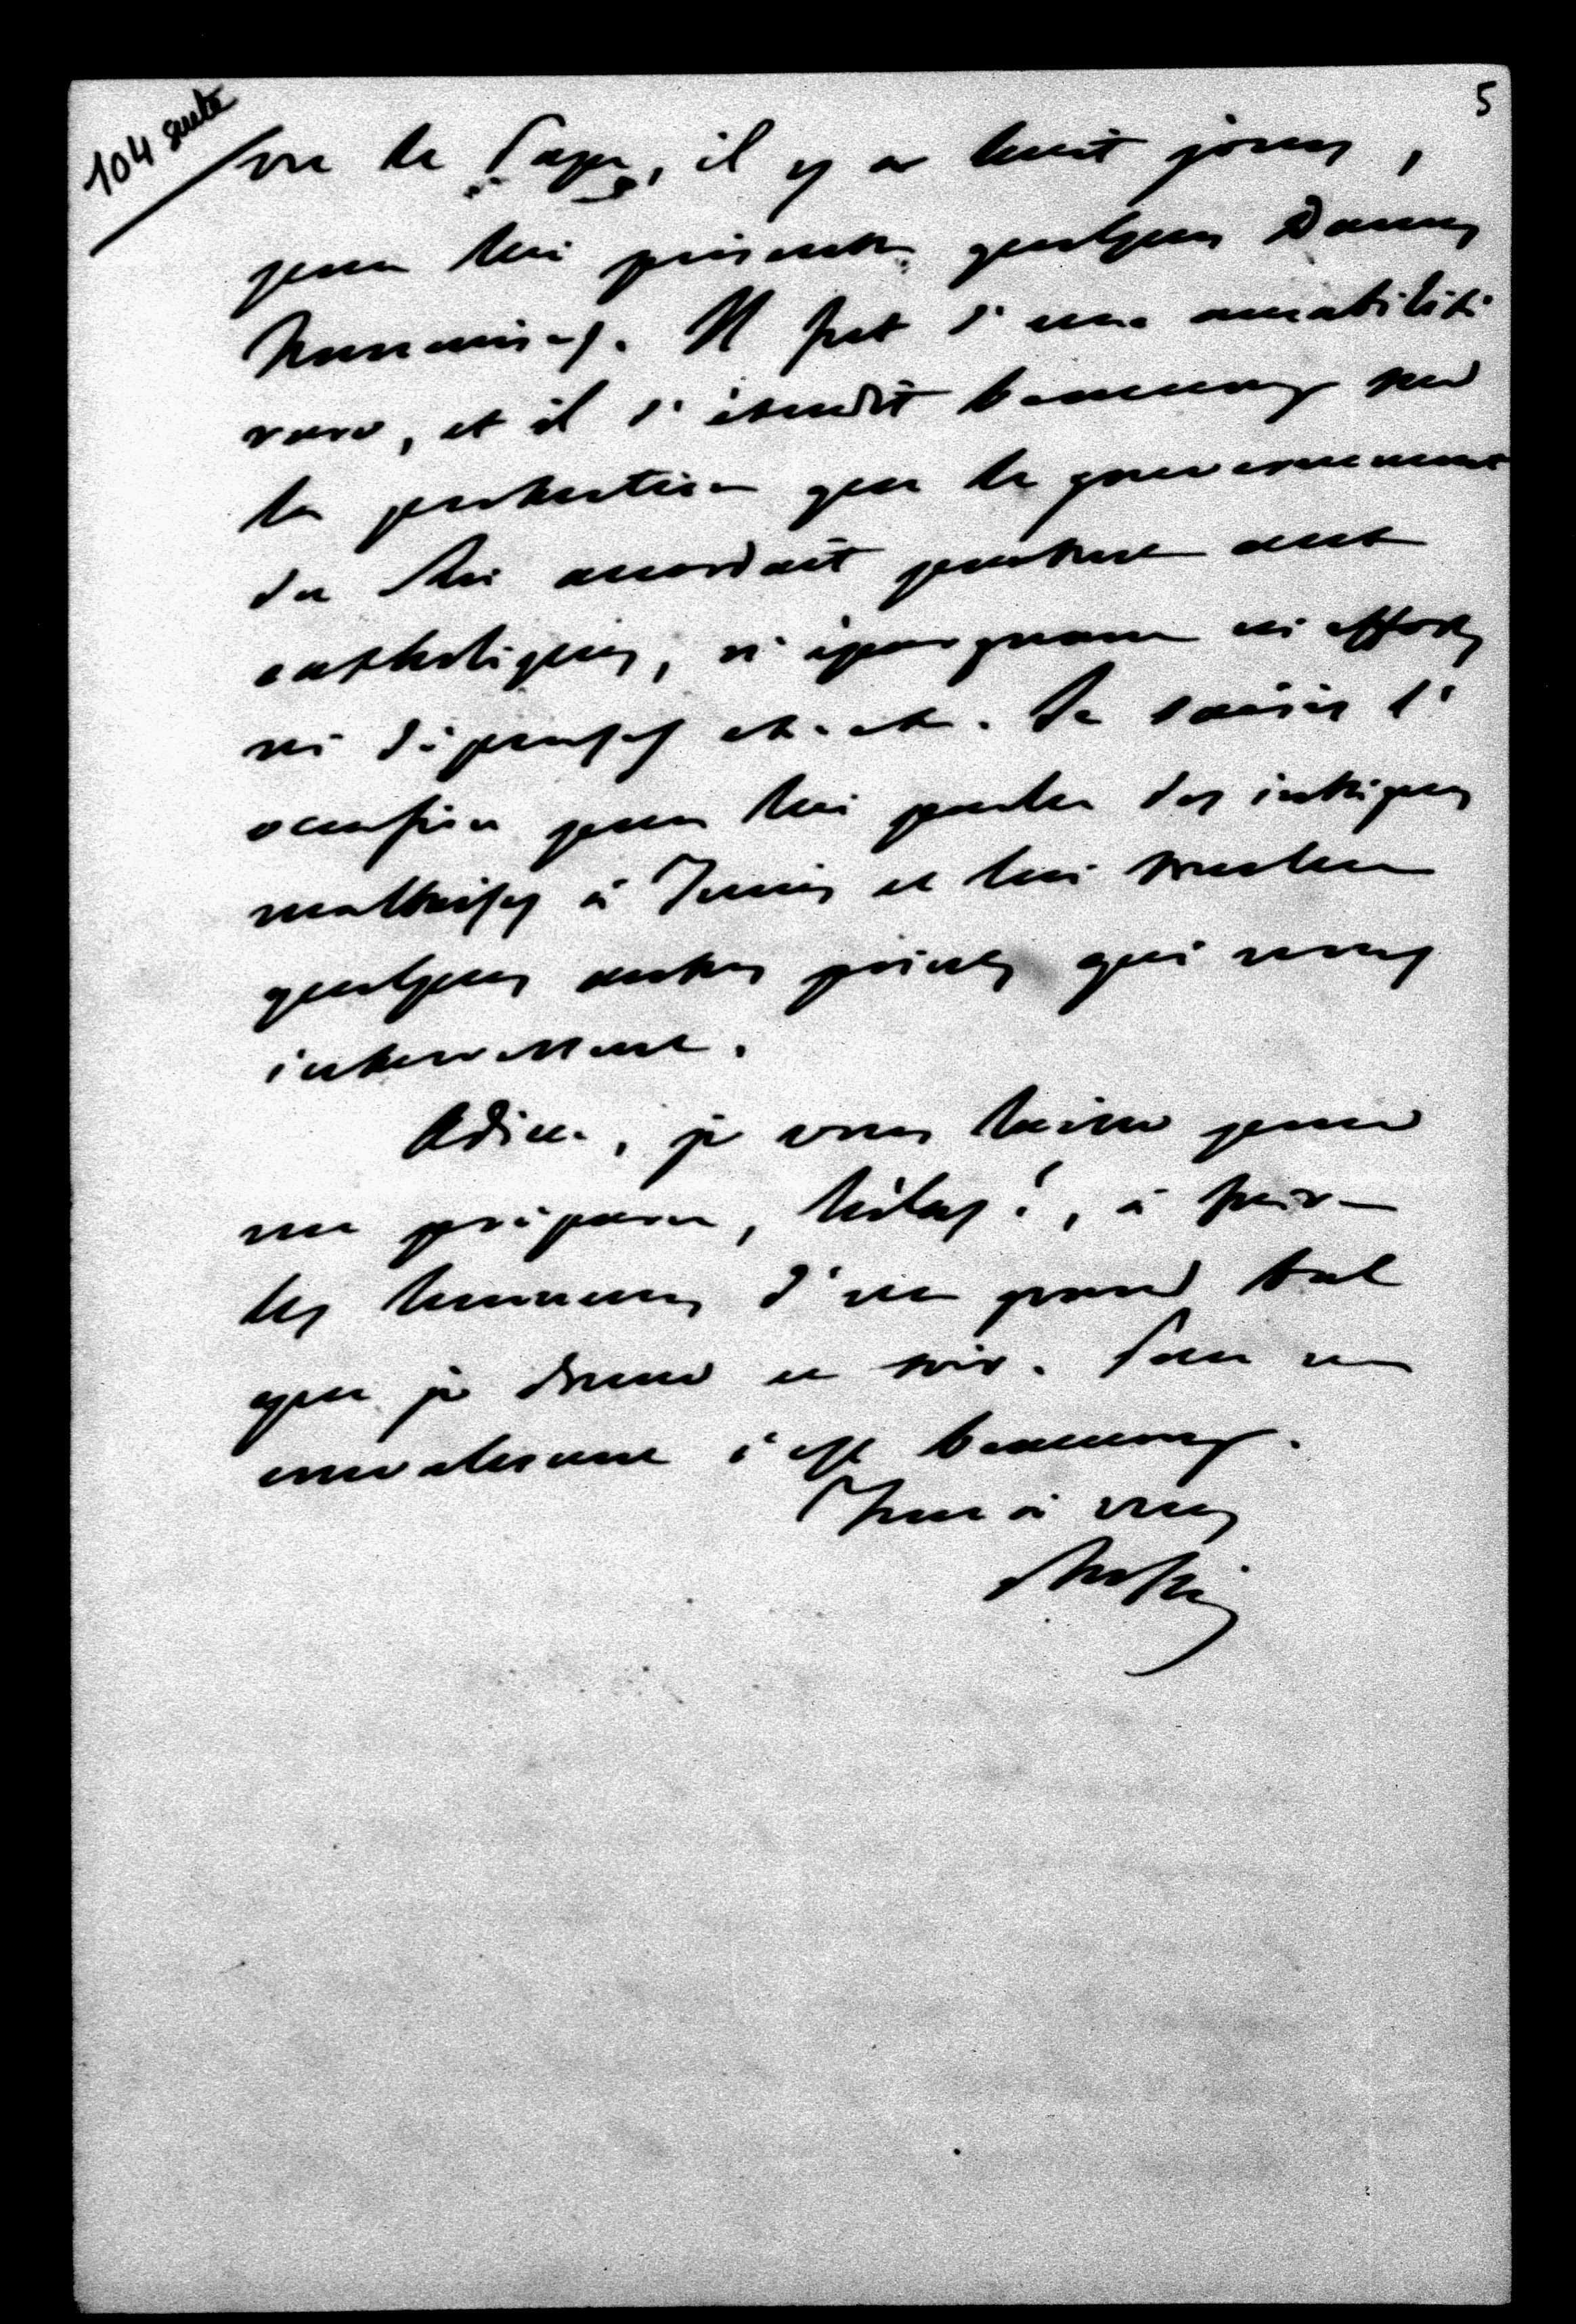 104 suite
5
vu le Pape, il y a huit jours,
pour lui présenter quelques Dames
françaises. Il fut d'une amabilité
rare, et il s'étendit beaucoup sur
la protection que le gouvernement
du Roi accordait partout aux
catholiques, n'épargnant ni efforts
ni dépenses etc. etc. Je saisis l'
occasion pour lui parler des intrigues
maltaises à Tunis et lui toucher
quelques autres points qui nous
intéressent.
Adieu, je vous laisse pour
me préparer, hélas!, à faire
les honneurs d'un grand bal
que je donne ce soir. Pour un
convalescent c'est beaucoup.
Tout à vous